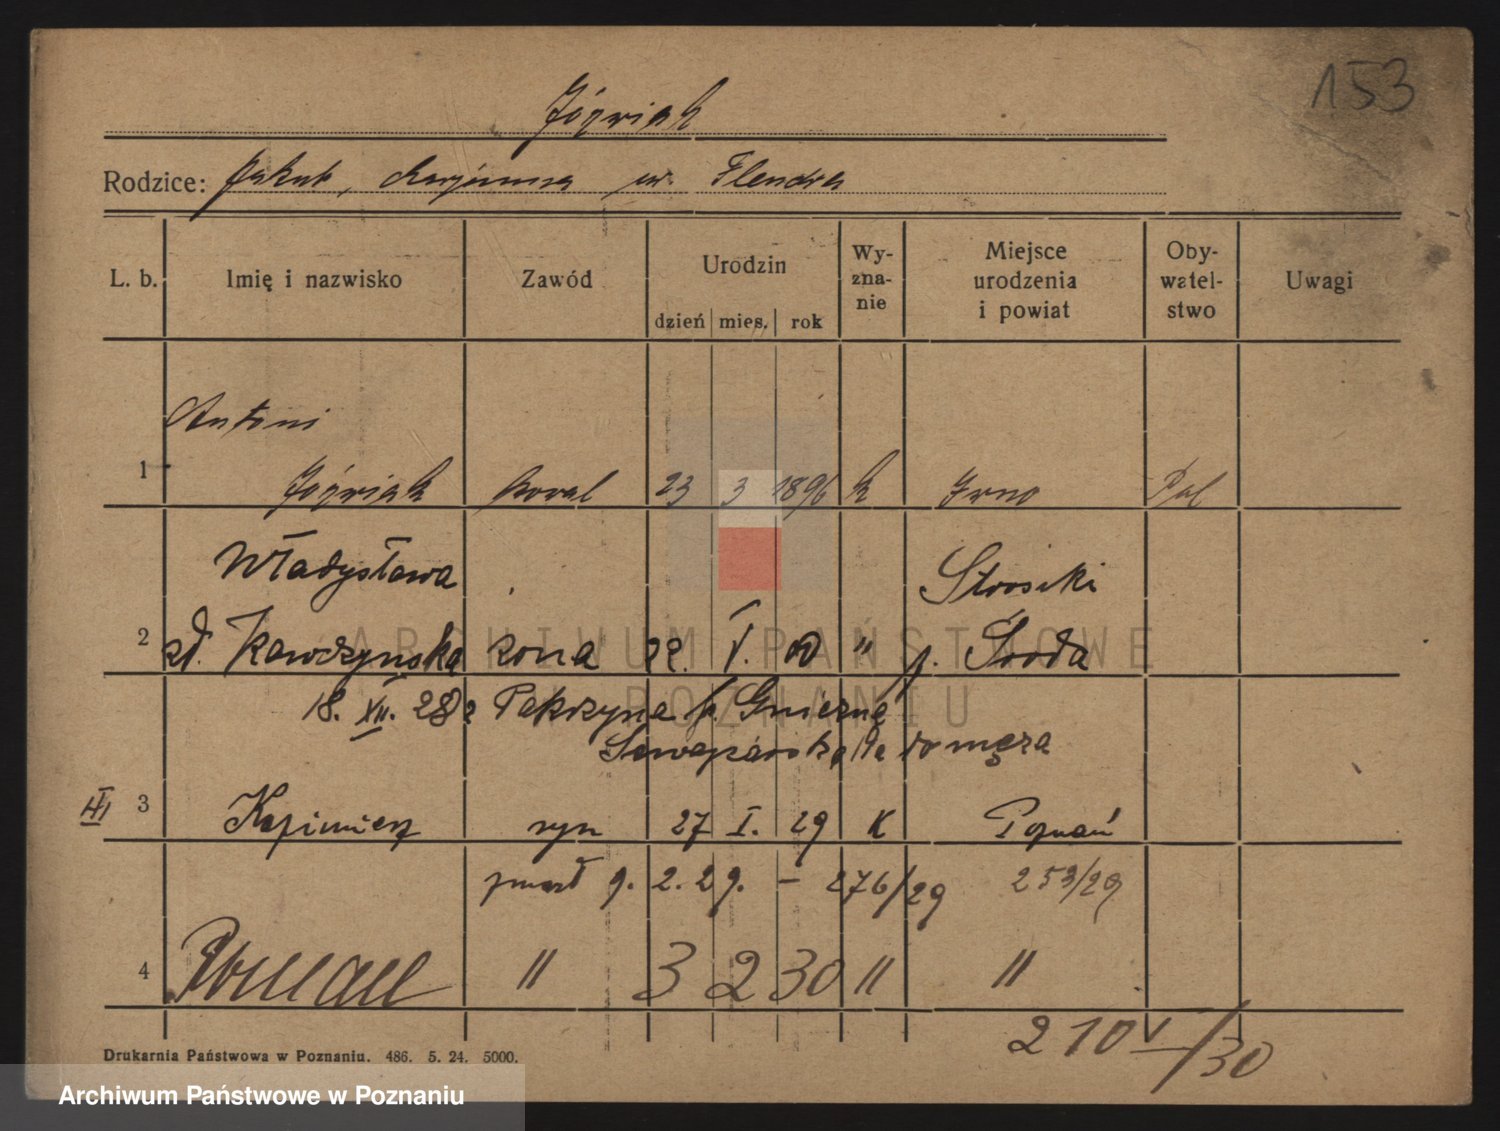 153
Jóźwiak
Rodzice: Jakub, Marjanna ur. Flendra
L. b. Imię i nazwisko Zawód Urodzin dzień mies. rok Wyznanie Miejsce urodzenia i powiat Obywatelstwo Uwagi
Antoni
1 Jóźwiak 23 3 1896 k Pol
Władysława
2 zd. Kawczyńska żona 22. V. 00 " p. Środa
18. XII. 28 z Pakszyna p. Gniezno
do męża
III 3 Kazimierz syn 27 I. 29 K Poznań
zmarł 9. 2. 29. – 276/29 253/29
4 Roman " 3 2 30 " "
210 V/30
Drukarnia Państwowa w Poznaniu. 486. 5. 24. 5000.
ARCHIWUM PAŃSTWOWE
W POZNANIU
Archiwum Państwowe w Poznaniu